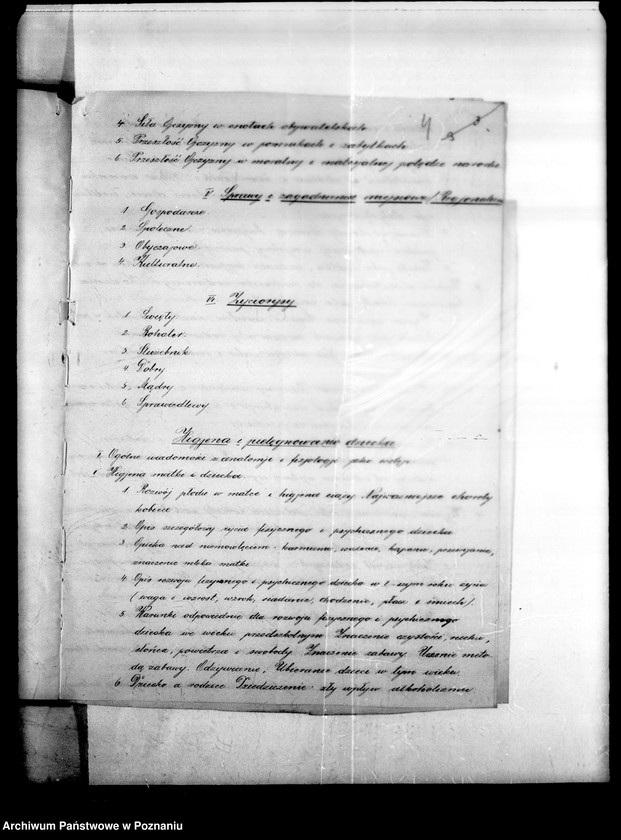 4
4. Siła Ojczyzny w cnotach obywatelskich
5. Przeszłość Ojczyzny w pomnikach i zabytkach
6. Przeszłość Ojczyzny w moralnej i materjalnej potędze narodu
V Sprawy i zagadnienia miejscowe /Regjonalne
1. Gospodarze
2. Społeczne
3. Obyczajowe
4. Kulturalne
VI Życiorysy
1. Święty
2. Bohater
3. Służebnik
4. Dobry
5. Mądry
6. Sprawiedliwy
Higjena i pielęgnowanie dziecka
I. Ogólne wiadomości z anatomji i fizjologji jako wstęp
Higjena matki i dziecka
1. Rozwój płodu w matce i higjena ciąży Najważniejsze choroby
kobiece
2. Opis szczegółowy życia fizycznego i psychicznego dziecka
3. Opieka nad niemowlęciem: karmienie, kąpanie, przewijanie,
znaczenie mleka matki
4. Opis rozwoju fizycznego i psychicznego dziecka w 1-szym roku życia
(waga i wzrost, wzrok, siadanie, chodzenie, płacz i śmiech).
5. Warunki odpowiednie dla rozwoju fizycznego i psychicznego
dziecka we wieku przedszkolnym Znaczenie czystości, ruchu,
słońca, powietrza i swobody Znaczenie zabawy Uczenie meto-
dą zabawy. Odżywianie, Ubieranie dzieci w tym wieku.
6. Dziecko a rodzice Dziedziczenie - zły wpływ alkoholizmu
Archiwum Państwowe w Poznaniu